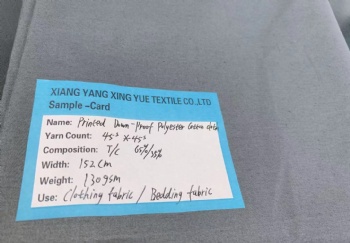 XIANG YANG XING YUE TEXTILE CO.,LTD
Sample -Card
Name: Printed Down-Proof Polyester Cotton
Yarn Count: 45ˢ X 45ˢ
Composition: T/C 65%/35%
Width: 152cm
Weight: 130gsm
Use: Clothing fabric / Bedding fabric